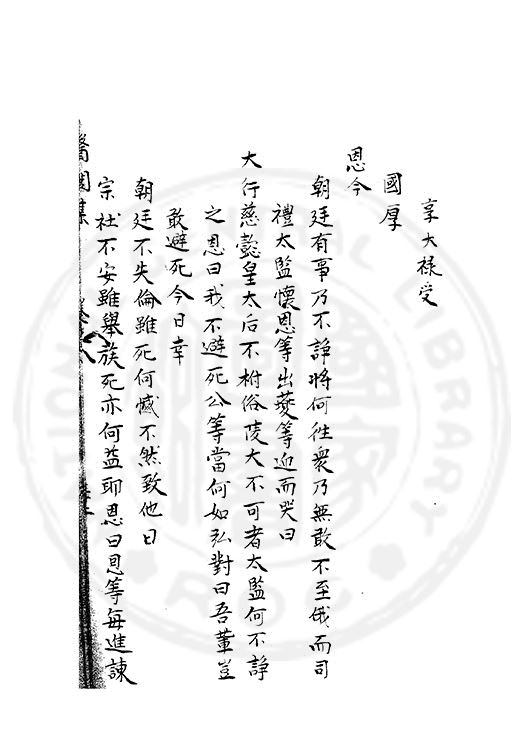 享大祿受
國厚
恩今
朝廷有事乃不諍將何往衆乃無敢不至俄而司
禮太監懷恩等出夔等迎而哭曰
大行慈懿皇太后不柎俗陵大不可者太監何不諍
之恩曰我不避死公等當何如弘對曰吾輩豈
敢避死今日幸
朝廷不失倫雖死何憾不然致他日
宗社不安雖舉族死亦何益耶恩曰恩等每進諫
醫閭集